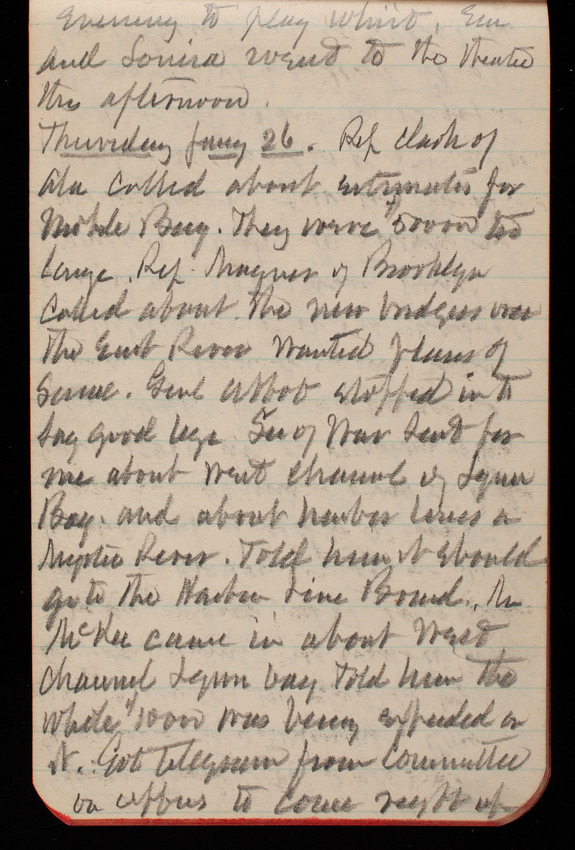 evening to play whist. Em
and Louisa went to the theatre
this afternoon.
Thursday Jany 26. Rep Clark of
Ala called about estimates for
Mobile Bay. They were $50000 too
large. Rep. Magner of Brooklyn
called about the new bridges over
the East River wanted plans of
same. Genl Abbot stopped in to
say good bye Sec of War sent for
me about West channel of Lynn
Bay. and about harbor lines in
Mystic River. Told him it should
go to the Harbor Line Board. Mr
McKee came in about West
Channel Lynn bay Told him the
whole $10000 was being expended on
it. Got telegram from Committee
on to come right up